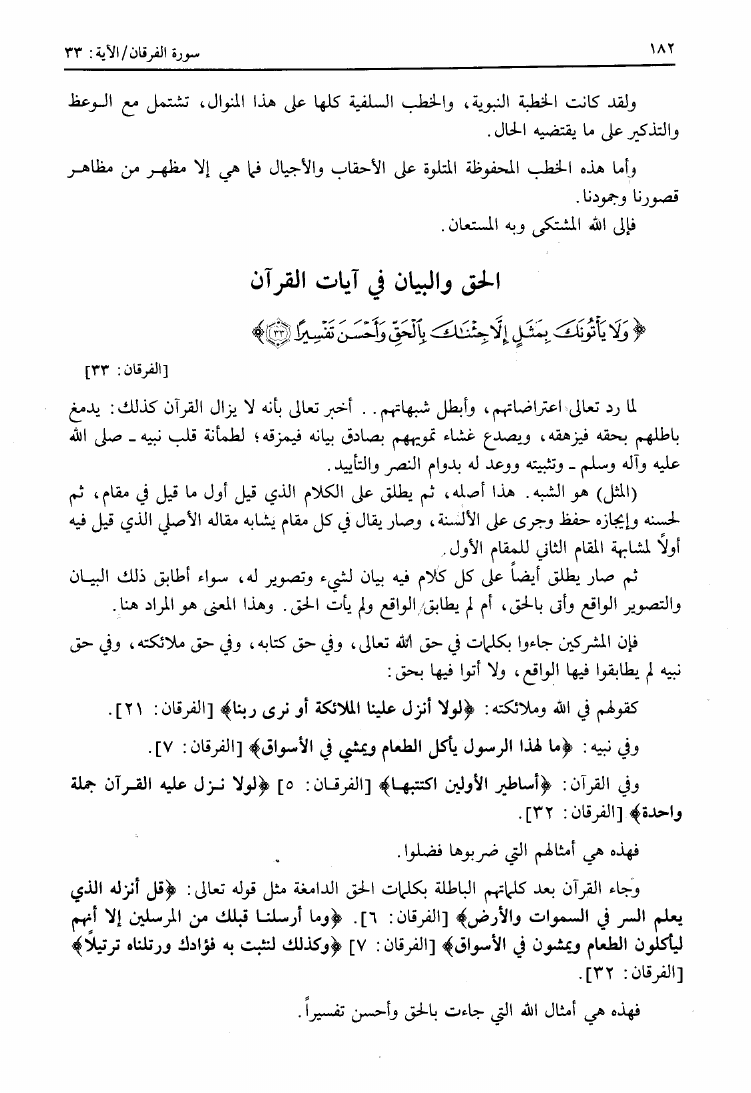 ١٨٢
سورة الفرقان/الآية: ٣٣
ولقد كانت الخطبة النبوية، والخطب السلفية كلها على هذا المنوال، تشتمل مع الـوعظ
والتذكير على ما يقتضيه الحال.
وأما هذه الخطب المحفوظة المتلوة على الأحقاب والأجيال فما هي إلا مظهـر من مظاهـر
قصورنا وجمودنا.
فإلى الله المشتكى وبه المستعان.
الحق والبيان في آيات القرآن
﴿ وَلَا يَأْتُونَكَ بِمَثَلٍ إِلَّا جِئْنَاكَ بِالْحَقِّ وَأَحْسَنَ تَفْسِيرًا ٣٣﴾
[الفرقان: ٣٣]
لما رد تعالى اعتراضاتهم، وأبطل شبهاتهم.. أخبر تعالى بأنه لا يزال القرآن كذلك: يدمغ
باطلهم بحقه فيزهقه، ويصدع غشاء تمويههم بصادق بيانه فيمزقه؛ لطمأنة قلب نبيه ـ صلى الله
عليه وآله وسلم ـ وتثبيته ووعد له بدوام النصر والتأييد.
(المثل) هو الشبه. هذا أصله، ثم يطلق على الكلام الذي قيل أول ما قيل في مقام، ثم
لحسنه وإيجازه حفظ وجرى على الألسنة، وصار يقال في كل مقام يشابه مقاله الأصلي الذي قيل فيه
أولاً لمشابهة المقام الثاني للمقام الأول.
ثم صار يطلق أيضاً على كل كلام فيه بيان لشيء وتصوير له، سواء أطابق ذلك البيـان
والتصوير الواقع وأتى بالحق، أم لم يطابق الواقع ولم يأت الحق. وهذا المعنى هو المراد هنا.
فإن المشركين جاءوا بكلمات في حق الله تعالى، وفي حق كتابه، وفي حق ملائكته، وفي حق
نبيه لم يطابقوا فيها الواقع، ولا أتوا فيها بحق:
كقولهم في الله وملائكته: ﴿لولا أنزل علينا الملائكة أو نرى ربنا﴾ [الفرقان: ٢١].
وفي نبيه: ﴿ما لهذا الرسول يأكل الطعام ويمشي في الأسواق﴾ [الفرقان: ٧].
وفي القرآن: ﴿أساطير الأولين اكتتبهـا﴾ [الفرقـان: ٥] ﴿لولا نـزل عليه القـرآن جملة
واحدة﴾ [الفرقان: ٣٢].
فهذه هي أمثالهم التي ضربوها فضلوا.
وجاء القرآن بعد كلماتهم الباطلة بكلمات الحق الدامغة مثل قوله تعالى: ﴿قل أنزله الذي
يعلم السر في السموات والأرض﴾ [الفرقان: ٦]. ﴿وما أرسلنـا قبلك من المرسلين إلا أنهم
ليأكلون الطعام ويمشون في الأسواق﴾ [الفرقان: ٧] ﴿وكذلك لنثبت به فؤادك ورتلناه ترتيلاً﴾
[الفرقان: ٣٢].
فهذه هي أمثال الله التي جاءت بالحق وأحسن تفسيراً.